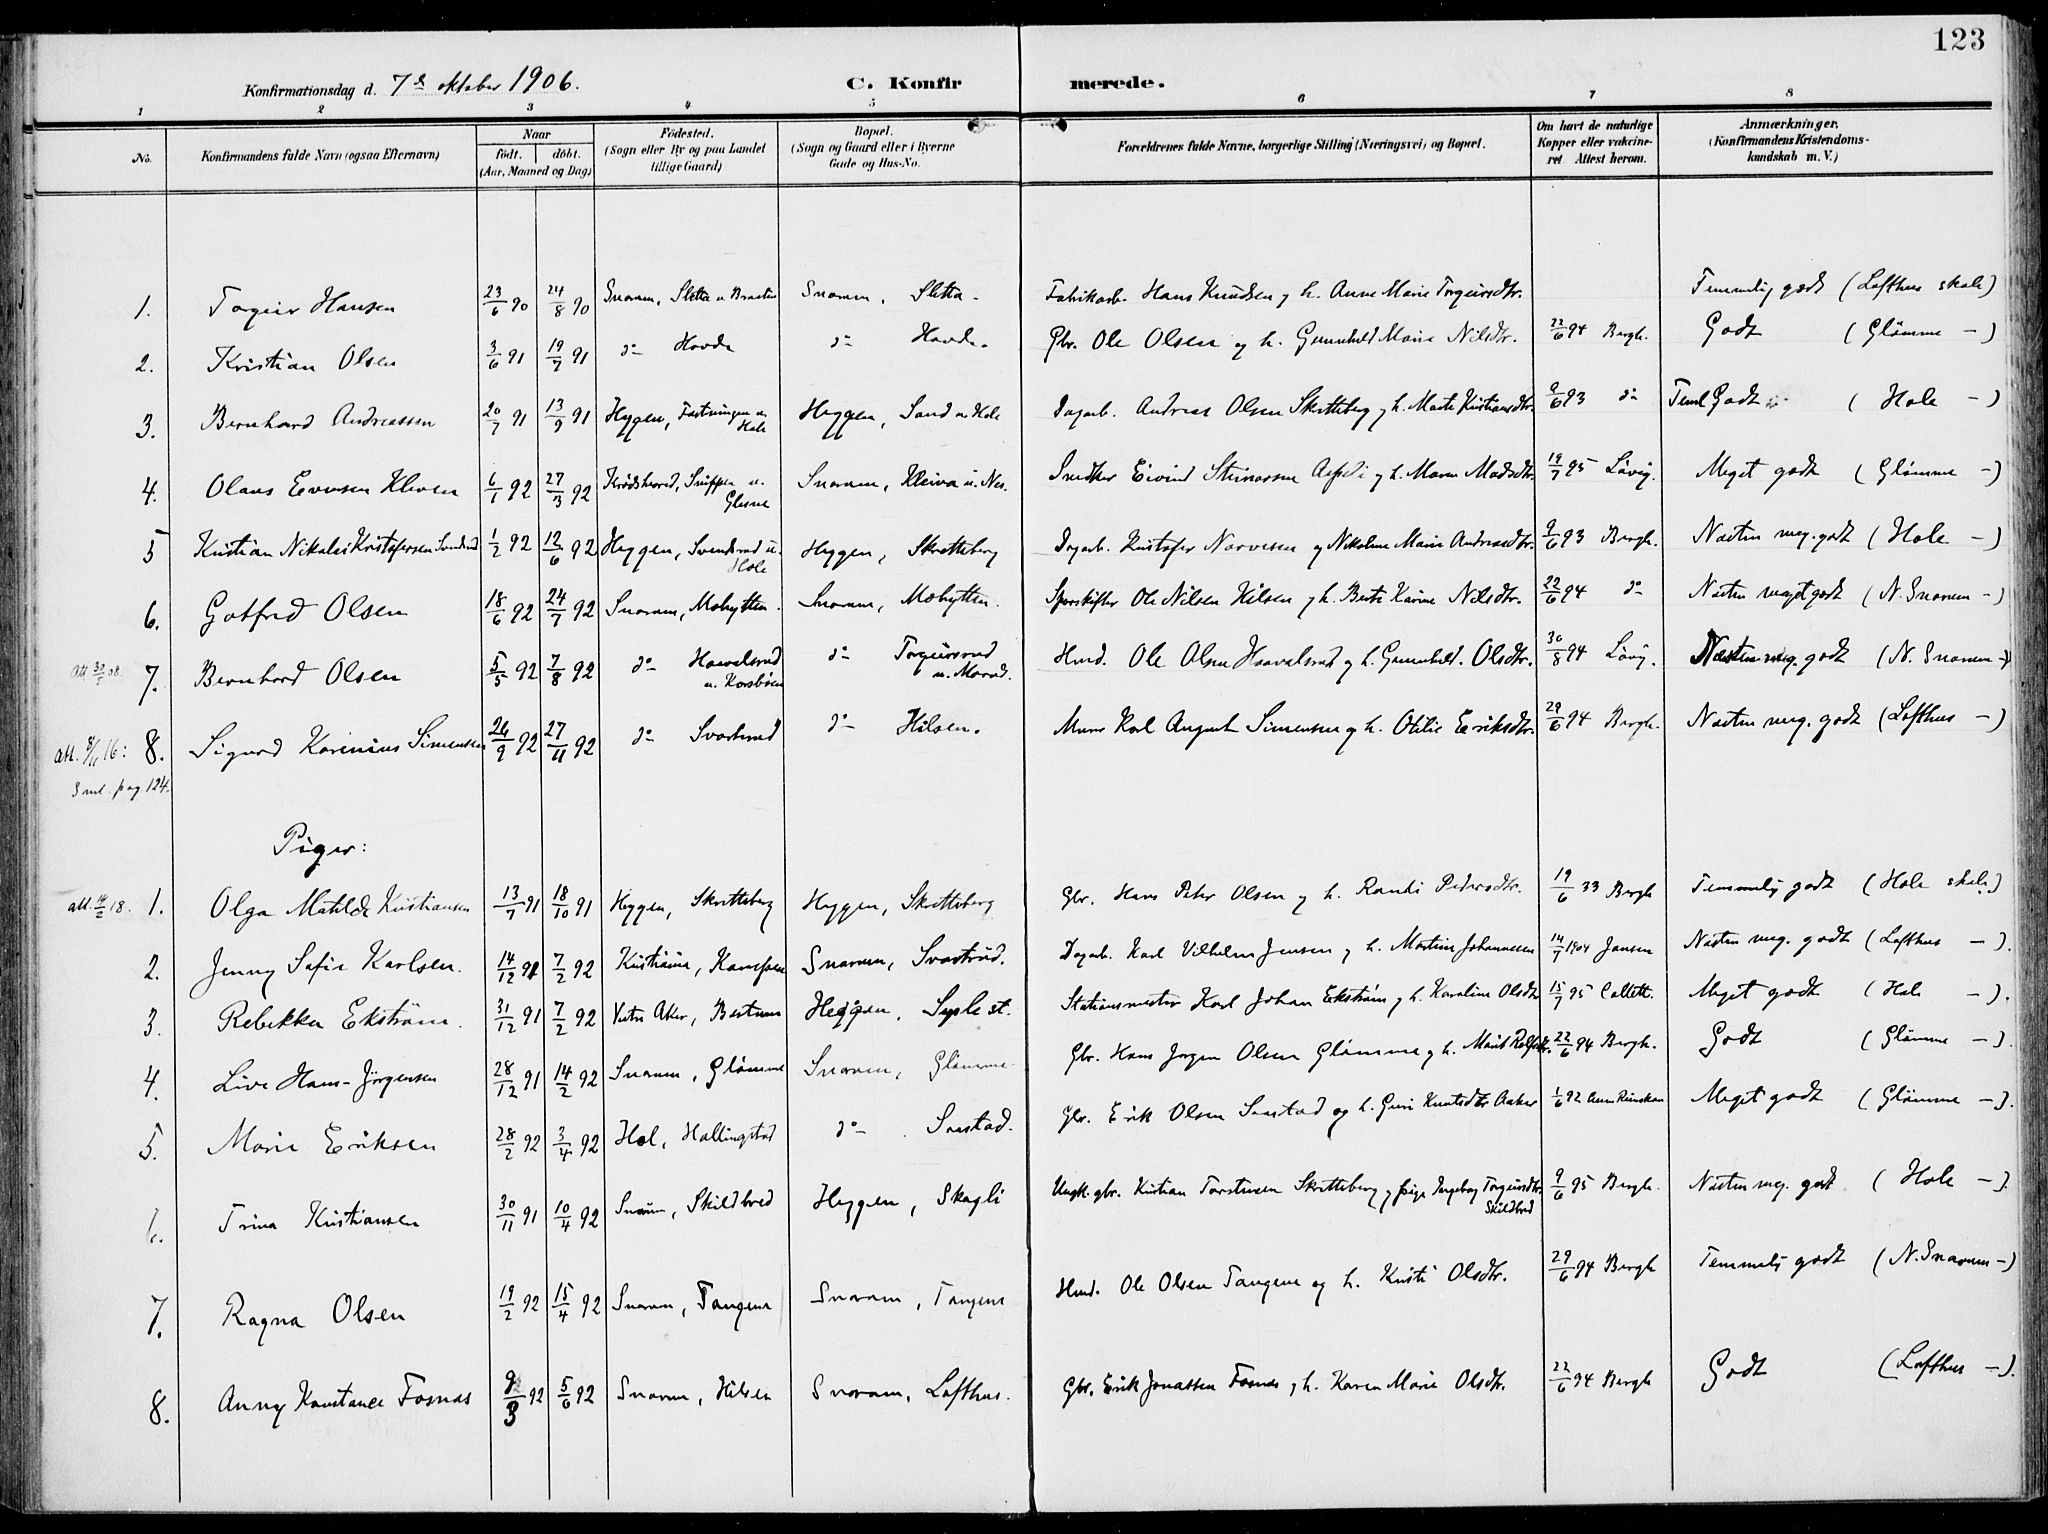 123
Konfirmationsdag d. 7de oktober 1906. C. Konfirmerede.
1 2 3 4 5 6 7 8
No. Konfirmandens fulde Navn (ogsaa Efternavn) Naar födt. döbt. (Aar, Maaned og Dag) Födested. (Sogn eller By og paa Landet tillige Gaard) Bopæl. (Sogn og Gaard eller i Byerne Gade og Hus-No. Forældrenes fulde Navne, borgerlige Stilling (Næringsvei) og Bopæl. Om havt de naturlige Kopper eller vakcineret Attest herom. Anmærkninger. (Konfirmandens Kristendomskundskab m. V.)
1. Torgeir Hansen 23/6 90 24/8 90 Snarum, Sletta u. Braaten Snarum, Sletta. Fabrikarb. Hans Knudsen og h. Anne Marie Torgeirsdtr. Temmelig godt (Lofthus skole)
2. Kristian Olsen 3/6 91 19/7 91 do Hovde do Hovde. Gbr. Ole Olsen og h. Gunnhild Marie Nilsdtr. 22/6 94 Bergh. Godt (Glömme -)
3. Bernhard Andreassen 20/7 91 13/9 91 Heggen, Hole Heggen, Sand u. Hole Dagarb. Andreas Olsen Skretteberg og h. Marte Kristiansdtr. 9/6 93 do Teml Godt (Hole -)
4. Olaus Evensen Kleven 6/1 92 27/3 92 Krödsherred, u. Glesne Snarum, Kleiva u. Nes. Snedker Eivind Steinarsen og h. Maren Madsdtr. 19/7 95 Lövig. Meget godt (Glömme -)
5 Kristian Nikolai Kristofersen Svendsrud 1/2 92 12/6 92 Heggen, Svendsrud u. Hole Heggen, Skretteberg Dagarb. Kristofer Narvesen og Nikoline Marie Andreasdtr. 9/6 93 Bergh. Næsten meg. godt (Hole -)
6. Gotfred Olsen 18/6 92 24/7 92 Snarum, Mohytten. Snarum, Mohytten. Sporskifter Ole Nilsen Hilsen og h. Berte Karine Nilsdtr. 22/6 94 do Næsten meget godt (N. Snarum -)
7. Bernhard Olsen 5/5 92 7/8 92 do Haavalsrud u. Korsbøen do Torgeirsrud u. Morud. Hmd. Ole Olsen Haavalsrud og h. Gunnhild. Olsdtr. 30/8 94 Lövig. Næsten meg. godt (N. Snarum -)
att. 8/11 16: 8. Sigurd Karenius Simensen 24/9 92 27/11 92 do Svartrud do Hilsen. Murer Karl August Simensen og h. Otilie Eriksdtr. 29/6 94 Bergh. Næsten meg. godt (Lofthus -)
pag 124.
Piger:
att. 14/2 18. 1. Olga Matilde Kristiansen 13/7 91 18/10 91 Heggen, Skretteberg Heggen, Skretteberg Gbr. Hans Peter Olsen og h. Randi Pedersdtr. 19/6 33 Bergh Temmelig godt (Hole skole)
2. Jenny Sofie Karlsen. 14/12 91 7/2 92 Kristiania, Kampen Snarum, Svartrud. Dagarb. Karl Vilhelm Jensen og h. Martine Johannesen 14/7 1904 Jansen Næsten meg. godt (Lofthus -).
3. Rebekka Ekström. 31/12 91 7/2 92 Vestre Aker, Bestum Heggen, Sysle st. Stationsmester Karl Johan Ekström og h. Karoline Olsdtr 15/7 95 Collett. Meget godt (Hole -).
4. Live Hans-Jörgensen 28/12 91 14/2 92 Snarum, Glömme Snarum, Glömme. Gbr. Hans Jörgen Olsen Glömme og h. Marit 22/6 94 Bergh. Godt (Glömme -).
5. Marie Eriksen 28/2 92 3/4 92 Hol, Hallingstad do Saastad. Gbr. Erik Olsen Saastad og h. Guri Knutsdtr Aaker 1/6 92 Meget godt (Glömme -).
6. Trina Kristiansen 30/11 91 10/4 92 Snarum, Skildbred Heggen, Skagli Ungk. gbr. Kristian Torstensen Skretteberg og pige Ingeborg Torgeirsdtr. Skildbred 9/6 95 Bergh. Næsten meg. godt (Hole -).
7. Ragna Olsen 19/2 92 15/4 92 Snarum, Tangene Snarum, Tangene Hmd. Ole Olsen Tangene og h. Kristi Olsdtr. 29/6 94 Bergh Temmelig godt (N. Snarum -)
8. Anny Konstance Fosnæs 9/3 92 5/6 92 Snarum, Hilsen Snarum, Lofthus. Gbr. Erik Jonassen Fosnæs og h. Karen Marie Olsdtr. 22/6 94 Bergh Godt (Lofthus -).